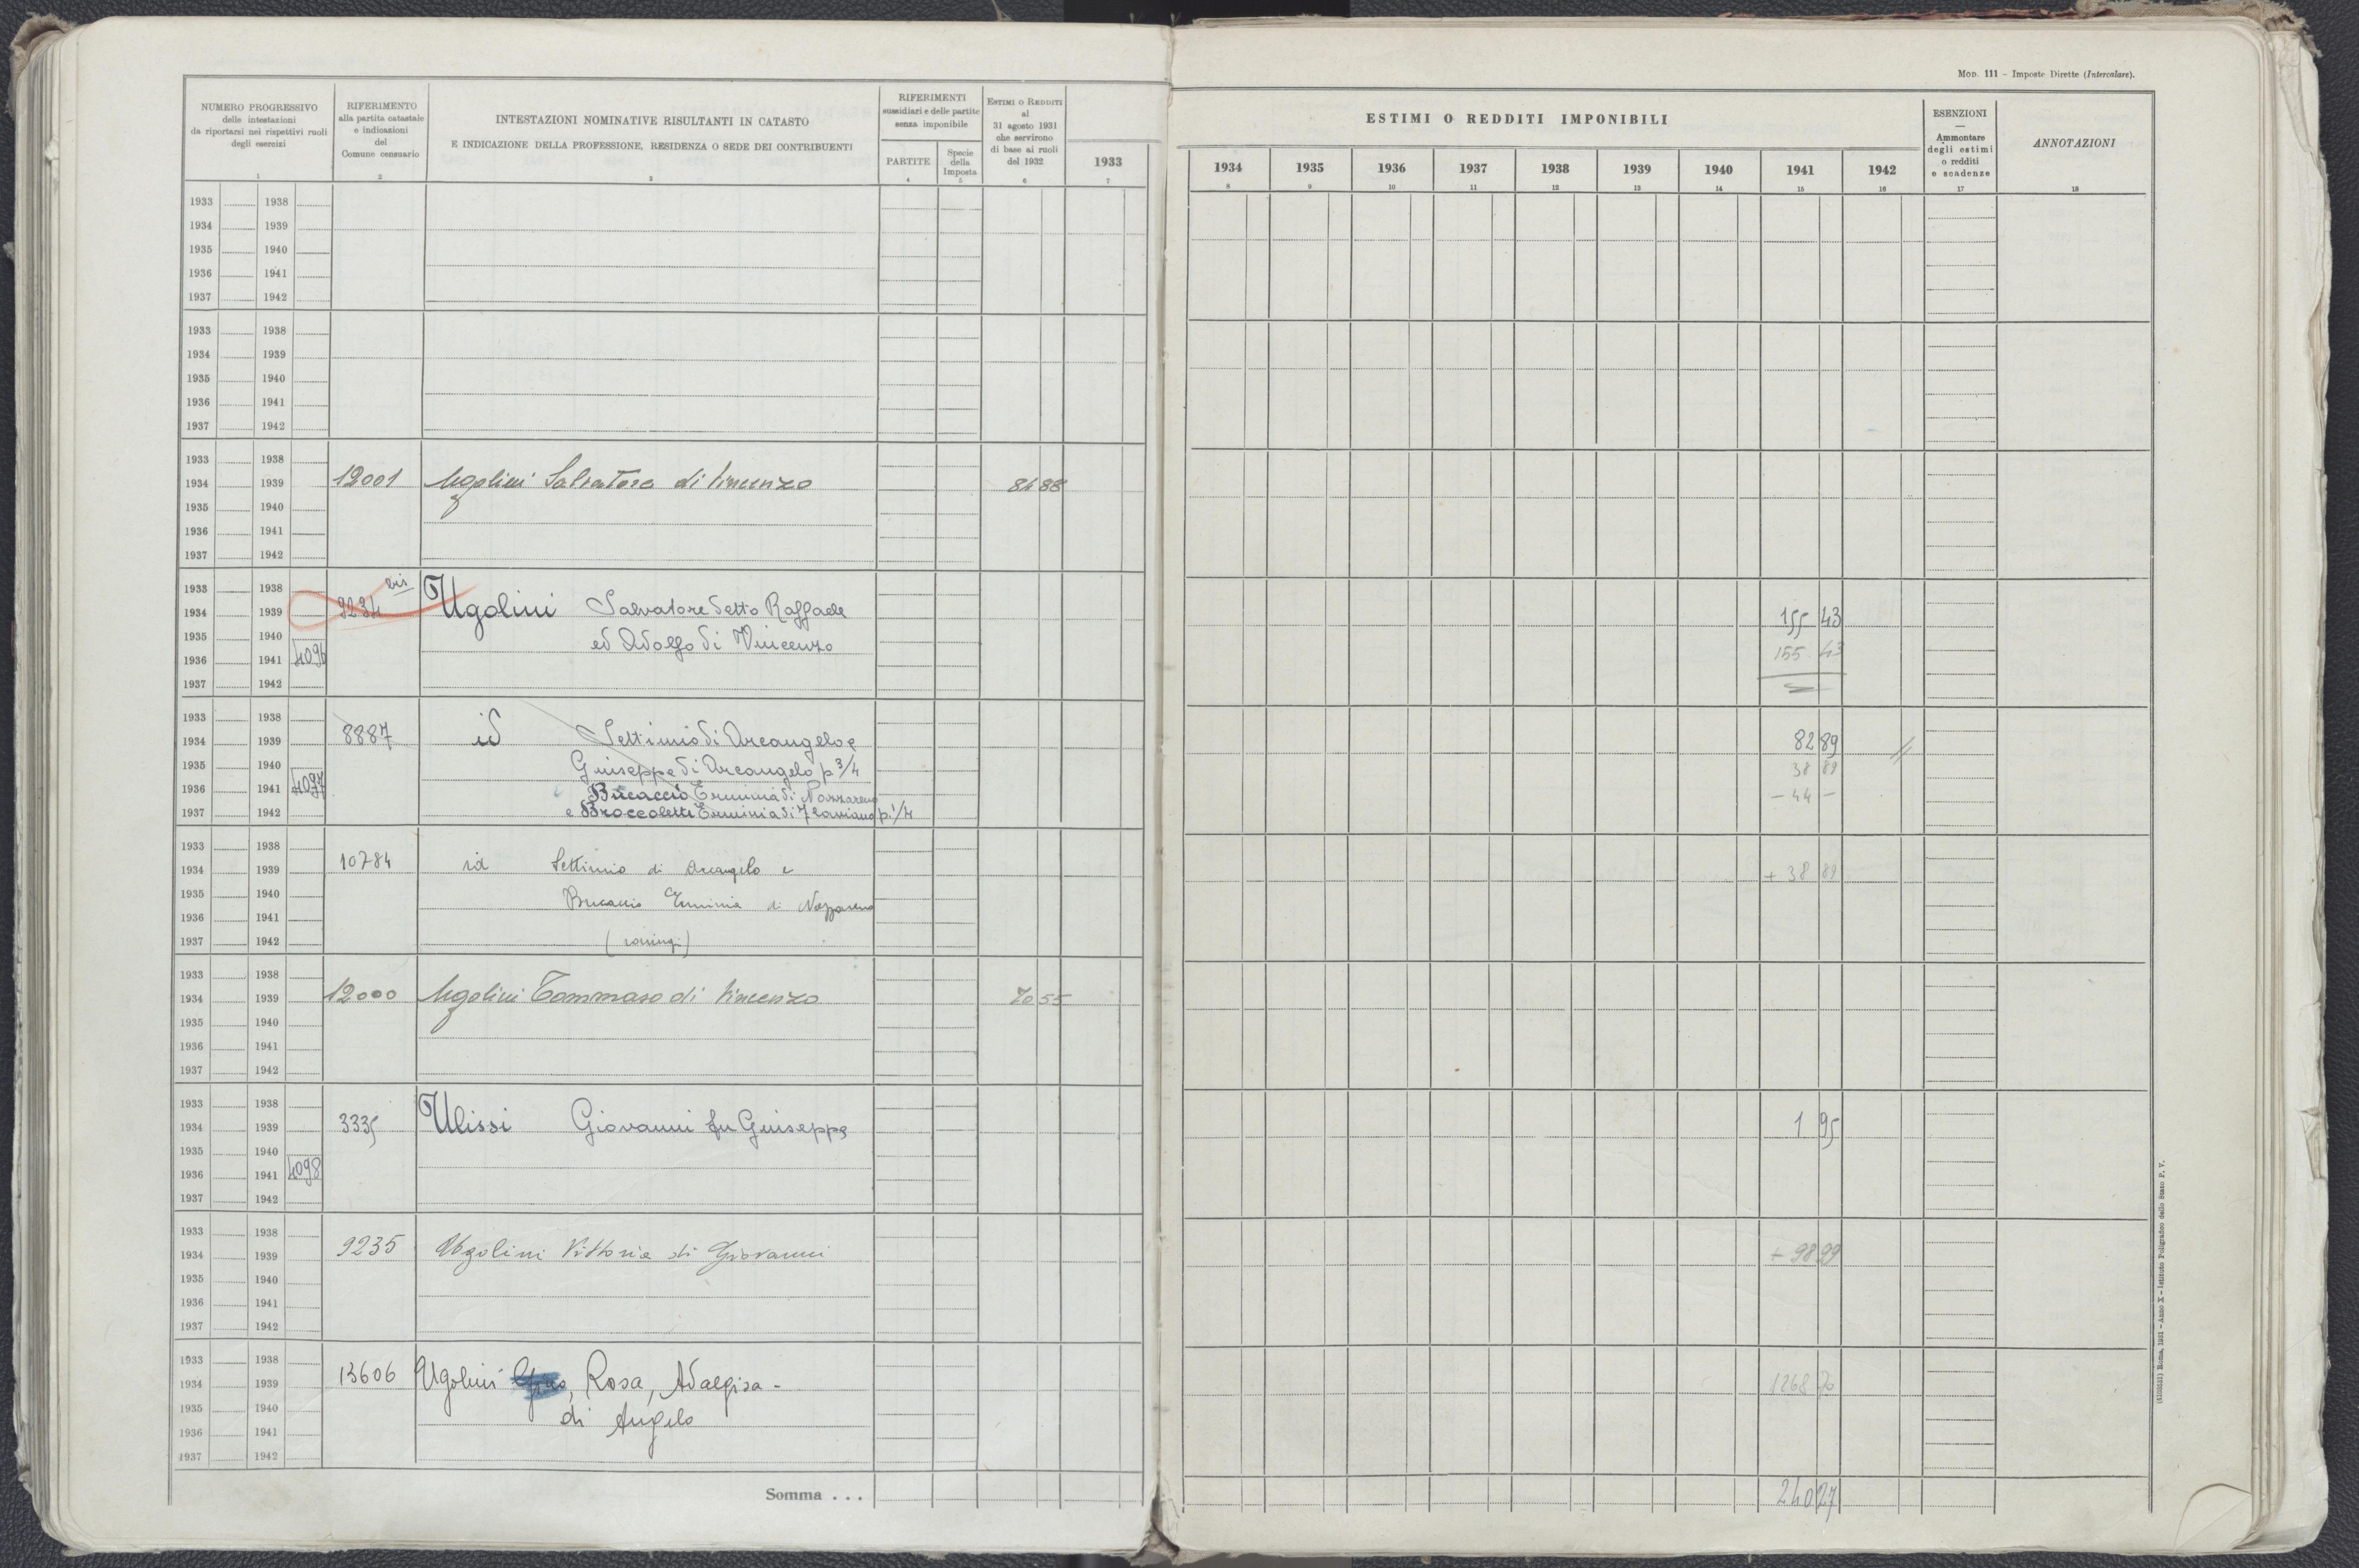 Mod. 111 - Imposte Dirette (Intercalare).
NUMERO PROGRESSIVO
delle intestazioni
da riportarsi nei rispettivi ruoli
degli esercizi
1
RIFERIMENTO
alla partita catastale
e indicazioni
del
Comune censuario
2
INTESTAZIONI NOMINATIVE RISULTANTI IN CATASTO
E INDICAZIONE DELLA PROFESSIONE, RESIDENZA O SEDE DEI CONTRIBUENTI
3
RIFERIMENTI
sussidiari e delle partite
senza imponibile
PARTITE
4
Specie
della
Imposta
5
ESTIMI O REDDITI
al
31 agosto 1931
che servirono
di base ai ruoli
del 1932
6
1933
7
ESTIMI O REDDITI IMPONIBILI
1934 1935 1936 1937 1938 1939 1940 1941 1942
8 9 10 11 12 13 14 15 16
ESENZIONI
Ammontare
degli estimi
o redditi
e scadenze
17
ANNOTAZIONI
18
1933 1938
1934 1939
1935 1940
1936 1941
1937 1942
1933 1938
1934 1939
1935 1940
1936 1941
1937 1942
1933 1938
1934 1939 12001 Ugolini Salvatore di Vincenzo 84 88
1935 1940
1936 1941
1937 1942
1933 1938 bis
1934 1939 9234 Ugolini Salvatore detto Raffaele 155 43
1935 1940 ed Adolfo di Vincenzo
1936 1941 4096 155 43
1937 1942
1933 1938
1934 1939 8887 id Settimio di Arcangelo e 82 89
1935 1940 Giuseppe di Arcangelo p 3/4 38 89
1936 1941 4097 Bucaccio Erminia di Nazzareno - 44 -
1937 1942 e Broccoletti Erminia di p. 1/4
1933 1938
1934 1939 10784 id Settimio di Arcangelo e + 38 89
1935 1940 Bucaccio Erminia di Nazzareno
1936 1941
1937 1942 (coniugi)
1933 1938
1934 1939 12000 Ugolini Tommaso di Vincenzo 70 55
1935 1940
1936 1941
1937 1942
1933 1938
1934 1939 3335 Ulissi Giovanni fu Giuseppe 1 95
1935 1940
1936 1941 4098
1937 1942
1933 1938
1934 1939 9235 Ugolini Vittoria di Giovanni + 98 99
1935 1940
1936 1941
1937 1942
1933 1938
1934 1939 13606 Ugolini Rosa, Adalgisa - 1268 70
1935 1940 di Angelo
1936 1941
1937 1942
Somma . . . 240 27
(4103531) Roma, 1931 - Anno X - Istituto Poligrafico dello Stato P. V.